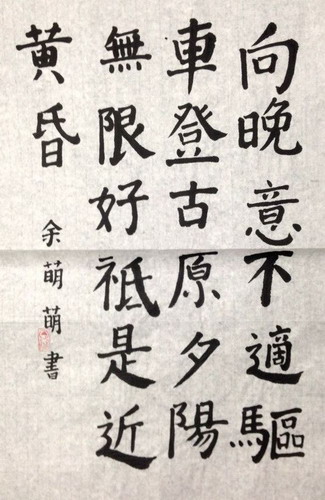 向晚意不適驅
車登古原夕陽
無限好祗是近
黃昏
余萌萌書